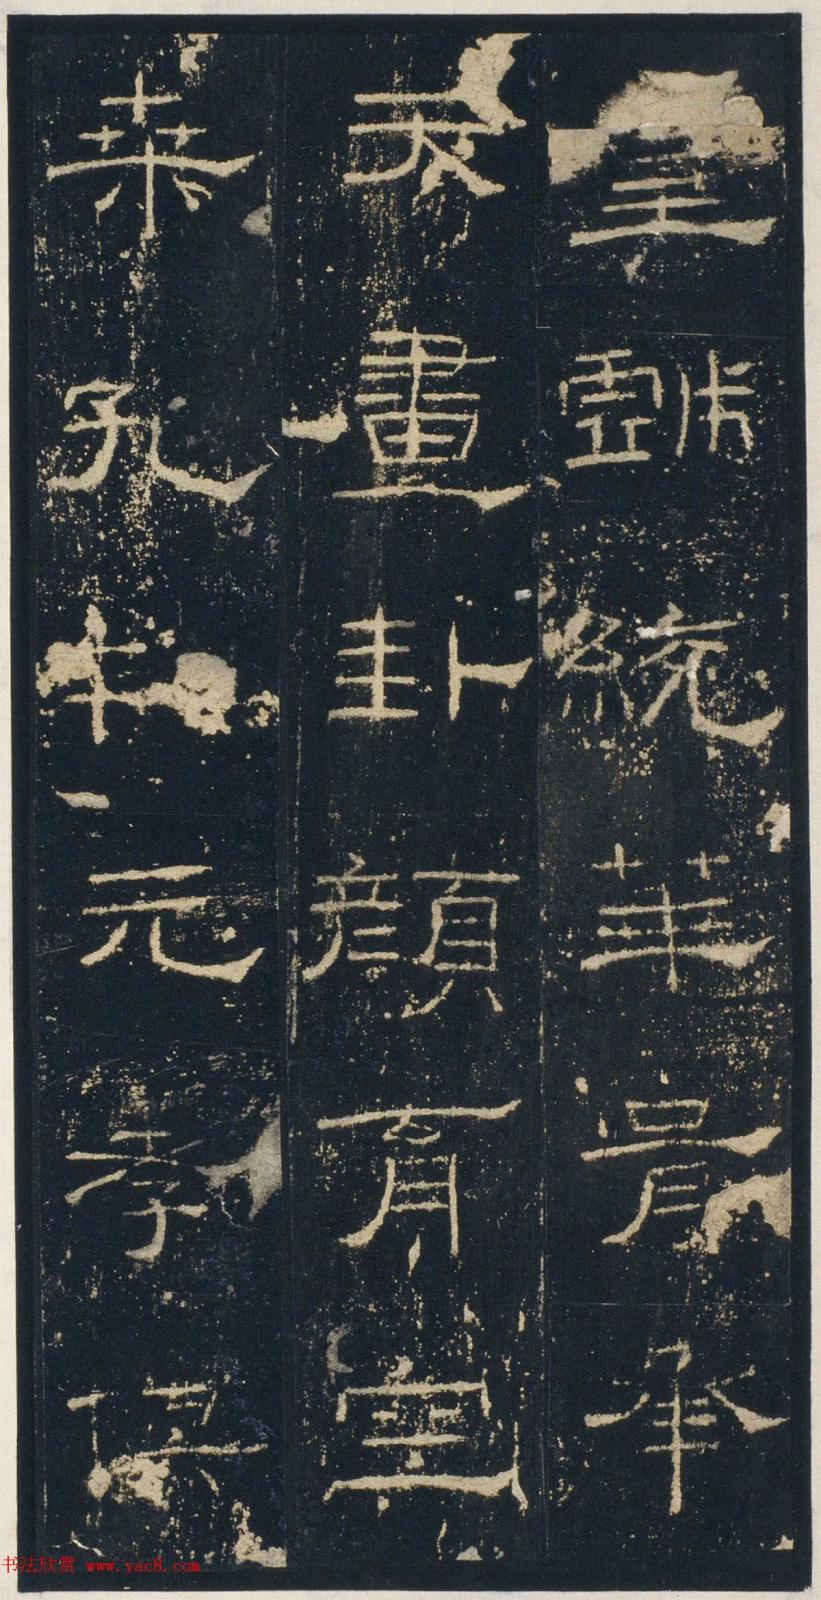 皇戲統華胥承
天畫卦顏育空
桑孔制元孝俱
书法欣赏 www.yac8.com